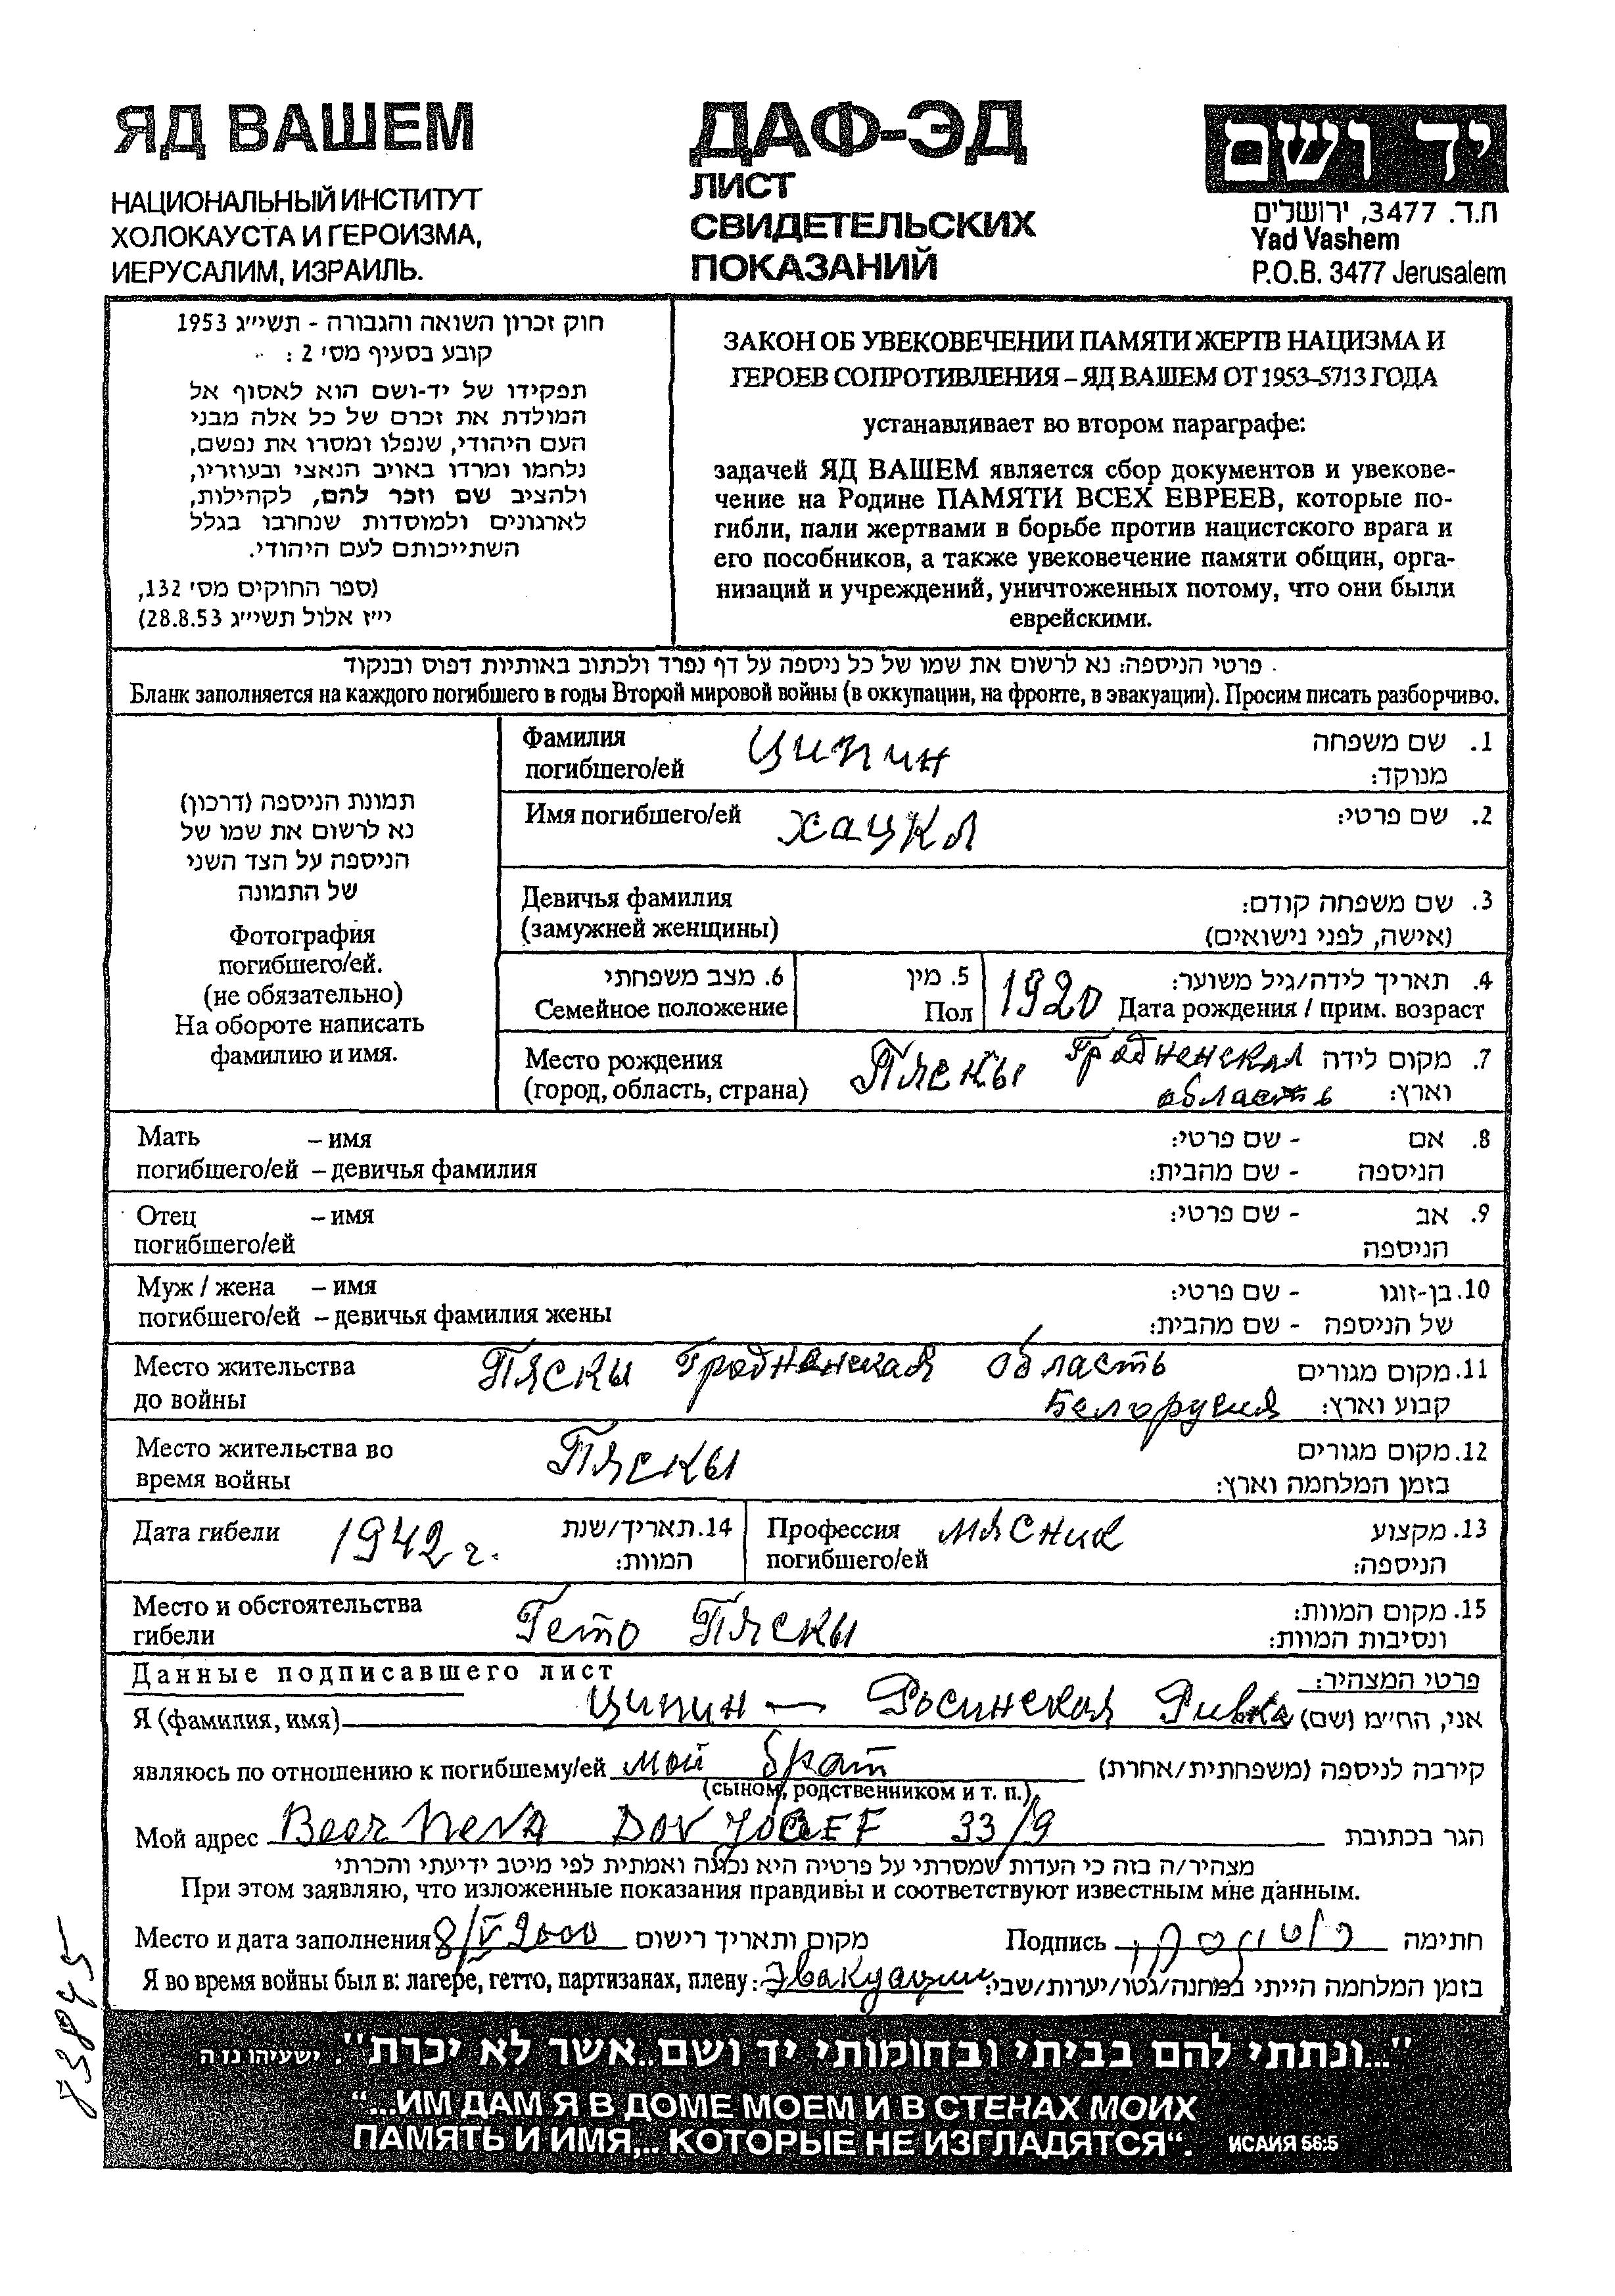 ЯД ВАШЕМ
НАЦИОНАЛЬНЫЙ ИНСТИТУТ
ХОЛОКАУСТА И ГЕРОИЗМА,
ИЕРУСАЛИМ, ИЗРАИЛЬ.
ДАФ-ЭД
ЛИСТ
СВИДЕТЕЛЬСКИХ
ПОКАЗАНИЙ
יד ושם
ת.ד. 3477, ירושלים
Yad Vashem
P.O.B. 3477 Jerusalem
חוק זכרון השואה והגבורה - תשי״ג 1953
קובע בסעיף מס׳ 2 :
תפקידו של יד-ושם הוא לאסוף אל
המולדת את זכרם של כל אלה מבני
העם היהודי, שנפלו ומסרו את נפשם,
נלחמו ומרדו באויב הנאצי ובעוזריו,
ולהציב שם וזכר להם, לקהילות,
לארגונים ולמוסדות שנחרבו בגלל
השתייכותם לעם היהודי.
(ספר החוקים מס׳ 132,
י״ז אלול תשי״ג 28.8.53)
ЗАКОН ОБ УВЕКОВЕЧЕНИИ ПАМЯТИ ЖЕРТВ НАЦИЗМА И
ГЕРОЕВ СОПРОТИВЛЕНИЯ – ЯД ВАШЕМ ОТ 1953–5713 ГОДА
устанавливает во втором параграфе:
задачей ЯД ВАШЕМ является сбор документов и увекове-
чение на Родине ПАМЯТИ ВСЕХ ЕВРЕЕВ, которые по-
гибли, пали жертвами в борьбе против нацистского врага и
его пособников, а также увековечение памяти общин, орга-
низаций и учреждений, уничтоженных потому, что они были
еврейскими.
פרטי הניספה: נא לרשום את שמו של כל ניספה על דף נפרד ולכתוב באותיות דפוס ובנקוד
Бланк заполняется на каждого погибшего в годы Второй мировой войны (в оккупации, на фронте, в эвакуации). Просим писать разборчиво.
תמונת הניספה (דרכון)
נא לרשום את שמו של
הניספה על הצד השני
של התמונה
Фотография
погибшего/ей.
(не обязательно)
На обороте написать
фамилию и имя.
Фамилия Ципин 1. שם משפחה
погибшего/ей מנוקד:
Имя погибшего/ей Хацкл 2. שם פרטי:
Девичья фамилия 3. שם משפחה קודם:
(замужней женщины) (אישה, לפני נישואים)
6. מצב משפחתי 5. מין 1920 4. תאריך לידה/גיל משוער:
Семейное положение Пол Дата рождения / прим. возраст
Место рождения Пяскы Гродненская 7. מקום לידה
(город, область, страна) область וארץ:
Мать – имя 8. אם - שם פרטי:
погибшего/ей – девичья фамилия הניספה - שם מהבית:
Отец – имя 9. אב - שם פרטי:
погибшего/ей הניספה
Муж / жена – имя 10. בן-זוגו - שם פרטי:
погибшего/ей – девичья фамилия жены של הניספה - שם מהבית:
Место жительства Пяскы Гродненская область 11. מקום מגורים
до войны Белорусия קבוע וארץ:
Место жительства во Пяскы 12. מקום מגורים
время войны בזמן המלחמה וארץ:
Дата гибели 1942 г. 14. תאריך/שנת Профессия мясник 13. מקצוע
המוות: погибшего/ей הניספה:
Место и обстоятельства Гето Пяскы 15. מקום המוות:
гибели ונסיבות המוות:
Данные подписавшего лист פרטי המצהיר:
Я (фамилия, имя) Ципин — Росинская Ривка אני, הח״מ (שם)
являюсь по отношению к погибшему/ей мой брат קירבה לניספה (משפחתית/אחרת)
(сыном, родственником и т. п.)
Мой адрес Beer Neva DOV YOSEF 33/9 הגר בכתובת
מצהיר/ה בזה כי העדות שמסרתי על פרטיה היא נכונה ואמתית לפי מיטב ידיעתי והכרתי
При этом заявляю, что изложенные показания правдивы и соответствуют известным мне данным.
Место и дата заполнения 8/V 2000 מקום ותאריך רישום Подпись חתימה
Я во время войны был в: лагере, гетто, партизанах, плену: Эвакуации בזמן המלחמה הייתי במחנה/גטו/יערות/שבי:
"...ונתתי להם בביתי ובחומותי יד ושם..אשר לא יכרת". ישעיהו נו ה
“...ИМ ДАМ Я В ДОМЕ МОЕМ И В СТЕНАХ МОИХ
ПАМЯТЬ И ИМЯ,.. КОТОРЫЕ НЕ ИЗГЛАДЯТСЯ“. ИСАИЯ 56:5